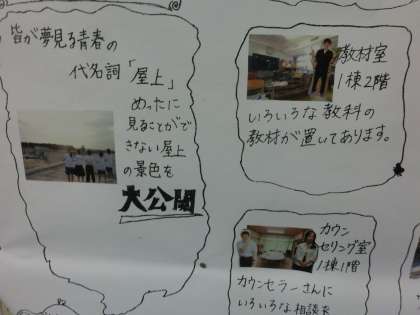 皆が夢見る青春の
代名詞「屋上」
めったに
見ることがで
きない屋上
の景色を
大公開
教材室
1棟2階
いろいろな教科の
教材が置いてあります。
カウン
セリング室
1棟1階
カウンセラーさんに
いろいろな相談を